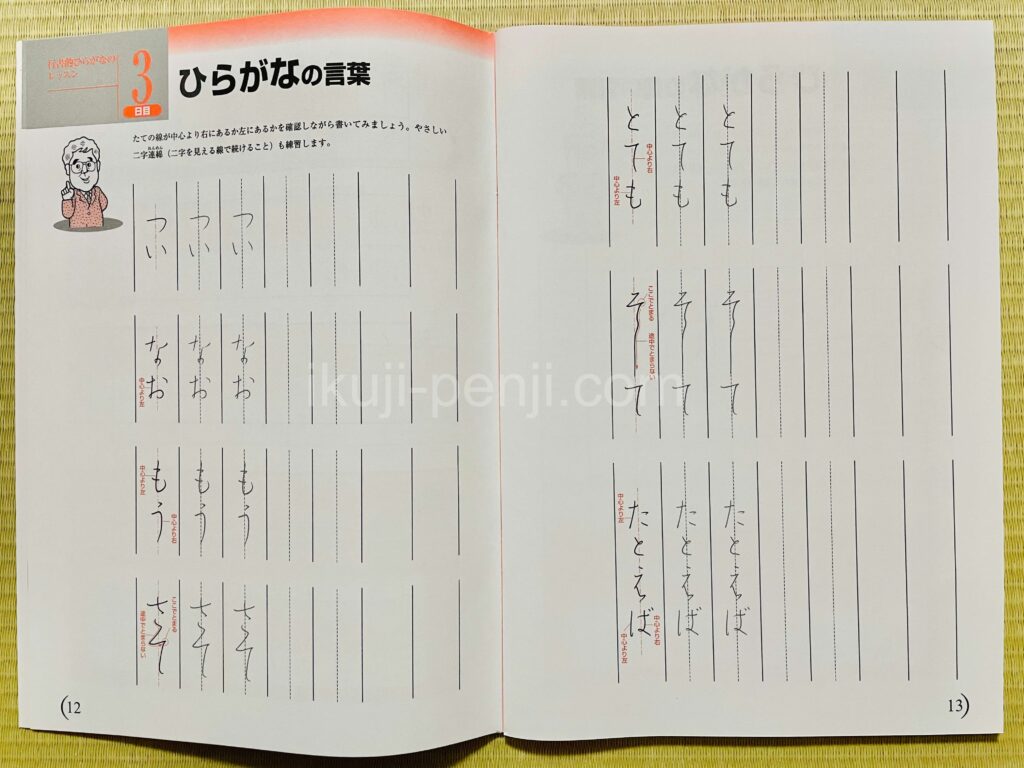 行書的ひらがなの
レッスン
3
日目
ひらがなの言葉
たての線が中心より右にあるか左にあるかを確認しながら書いてみましょう。やさしい
二字連綿(二字を見える線で続けること)も練習します。
れんめん
つい
つい
つい
なお
なお
なお
中心より左
もう
もう
もう
中心より左
中心より右
さて
さて
さて
ここでとまる
途中でとまらない
12
とても
とても
とても
中心より右
中心より左
そして
そして
そして
ここでとまる
途中でとまらない
たとえば
たとえば
たとえば
中心より左
中心より右
中心より左
13
ikuji-penji.com